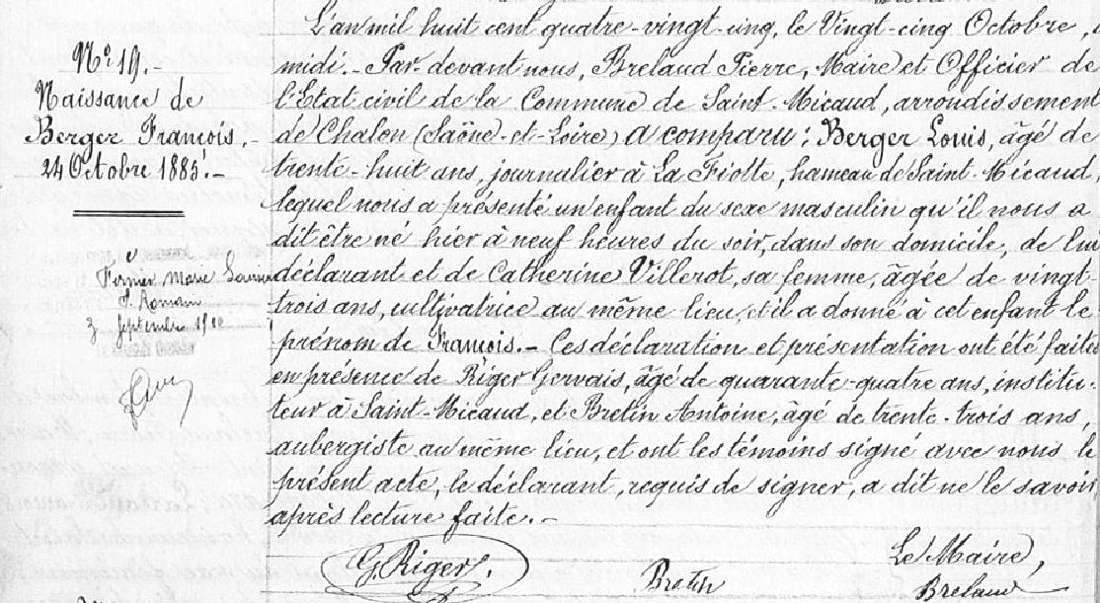 N° 19.-
Naissance de
Berger François.-
24 Octobre 1885.-
Marie
St Romain
3 septembre 1910
L'an mil huit cent quatre-vingt-cinq, le Vingt-cinq Octobre, à
midi.- Par devant nous, Brelaud Pierre, Maire et Officier de
l'Etat civil de la Commune de Saint-Micaud, arrondissement
de Chalon (Saône-et-Loire) a comparu: Berger Louis, âgé de
trente-huit ans, journalier à La Fiolle, hameau de Saint-Micaud,
lequel nous a présenté un enfant du sexe masculin qu'il nous a
dit être né hier à neuf heures du soir, dans son domicile, de lui
déclarant et de Catherine Villerot, sa femme, âgée de vingt-
trois ans, cultivatrice au même lieu, et il a donné à cet enfant le
prénom de François.- Ces déclaration et présentation ont été faites
en présence de Riger Gervais, âgé de quarante-quatre ans, institu-
teur à Saint-Micaud, et Bretin Antoine, âgé de trente-trois ans,
aubergiste au même lieu, et ont les témoins signé avec nous le
présent acte, le déclarant, requis de signer, a dit ne le savoir,
après lecture faite.-
G. Riger.
Bretin
Le Maire,
Brelaud